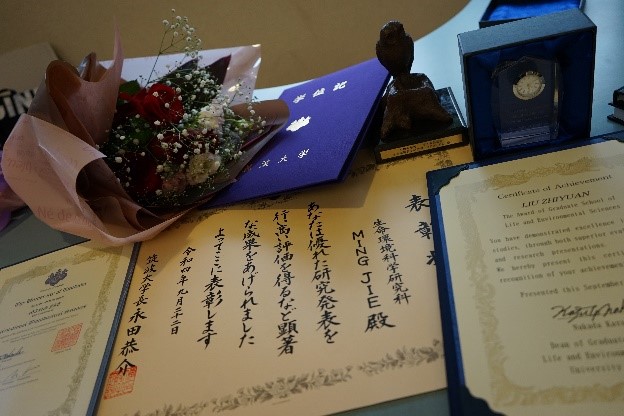 学位記
波大学
表彰状
生命環境科学研究科
MING JIE 殿
あなたは優れた研究発表を
行い高い評価を得るなど顕著
な成果をあげられました
よってここに表彰します
令和四年九月二十二日
筑波大学長 永田恭介
Certificate of Achievement
LIU ZHIYUAN
The Award of Graduate School of
Life and Environmental Sciences
You have demonstrated excellence
studies, through both superior
and research presentations.
We hereby present this certif
recognition of your achievement
Presented this September
Dean of Graduate
Life and Environ
University
The University of Tsukuba